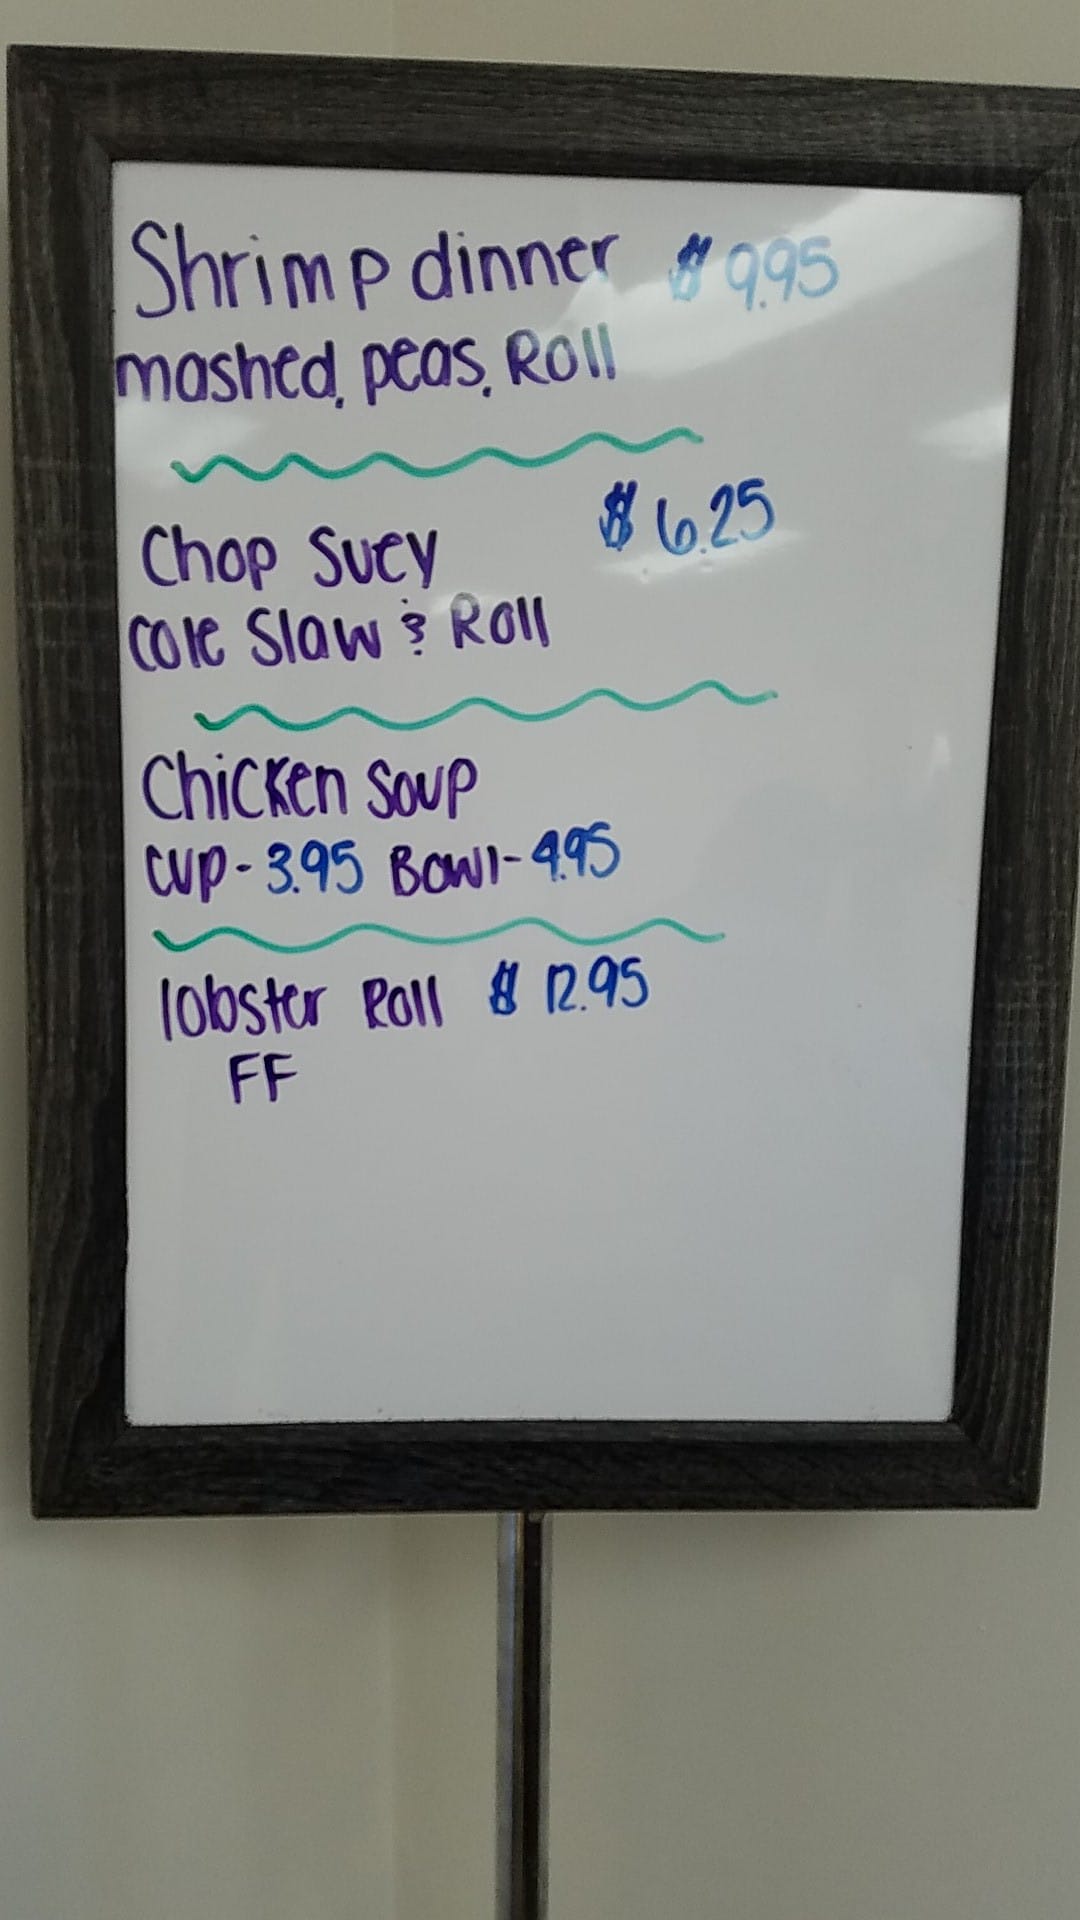 Shrimp dinner $9.95
mashed, peas, Roll
Chop Suey $6.25
Cole Slaw & Roll
Chicken Soup
Cup-3.95 Bowl-4.95
lobster Roll $12.95
FF